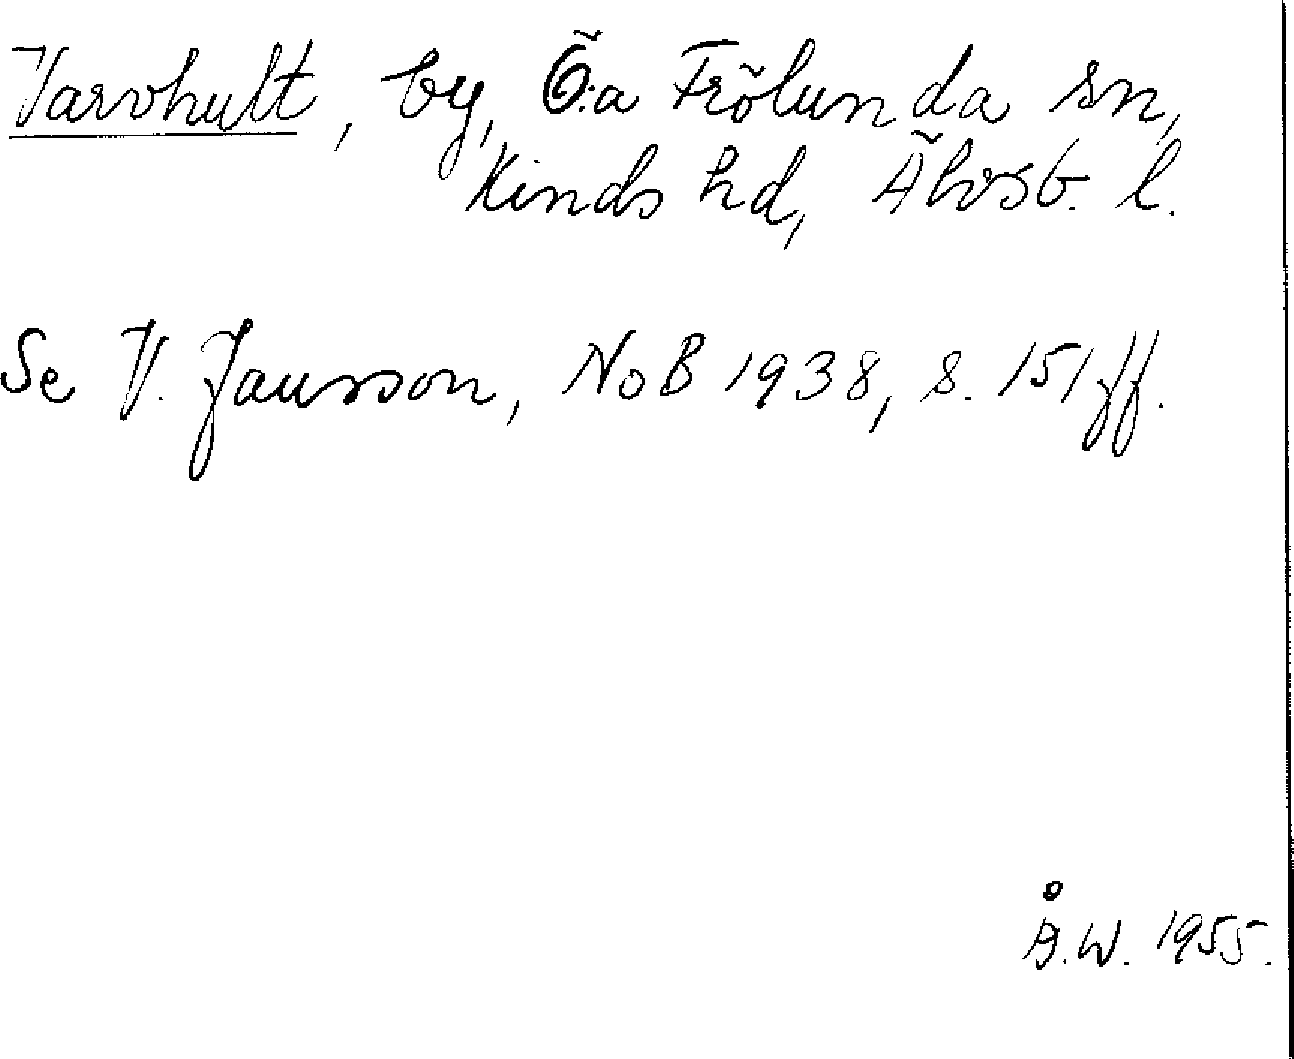 Varvhult, by, Ö:a Frölunda sn,
Kinds hd, Älvsb. l.
Se V. Jansson, NoB 1938, s. 151 ff.
Å.W. 1955.